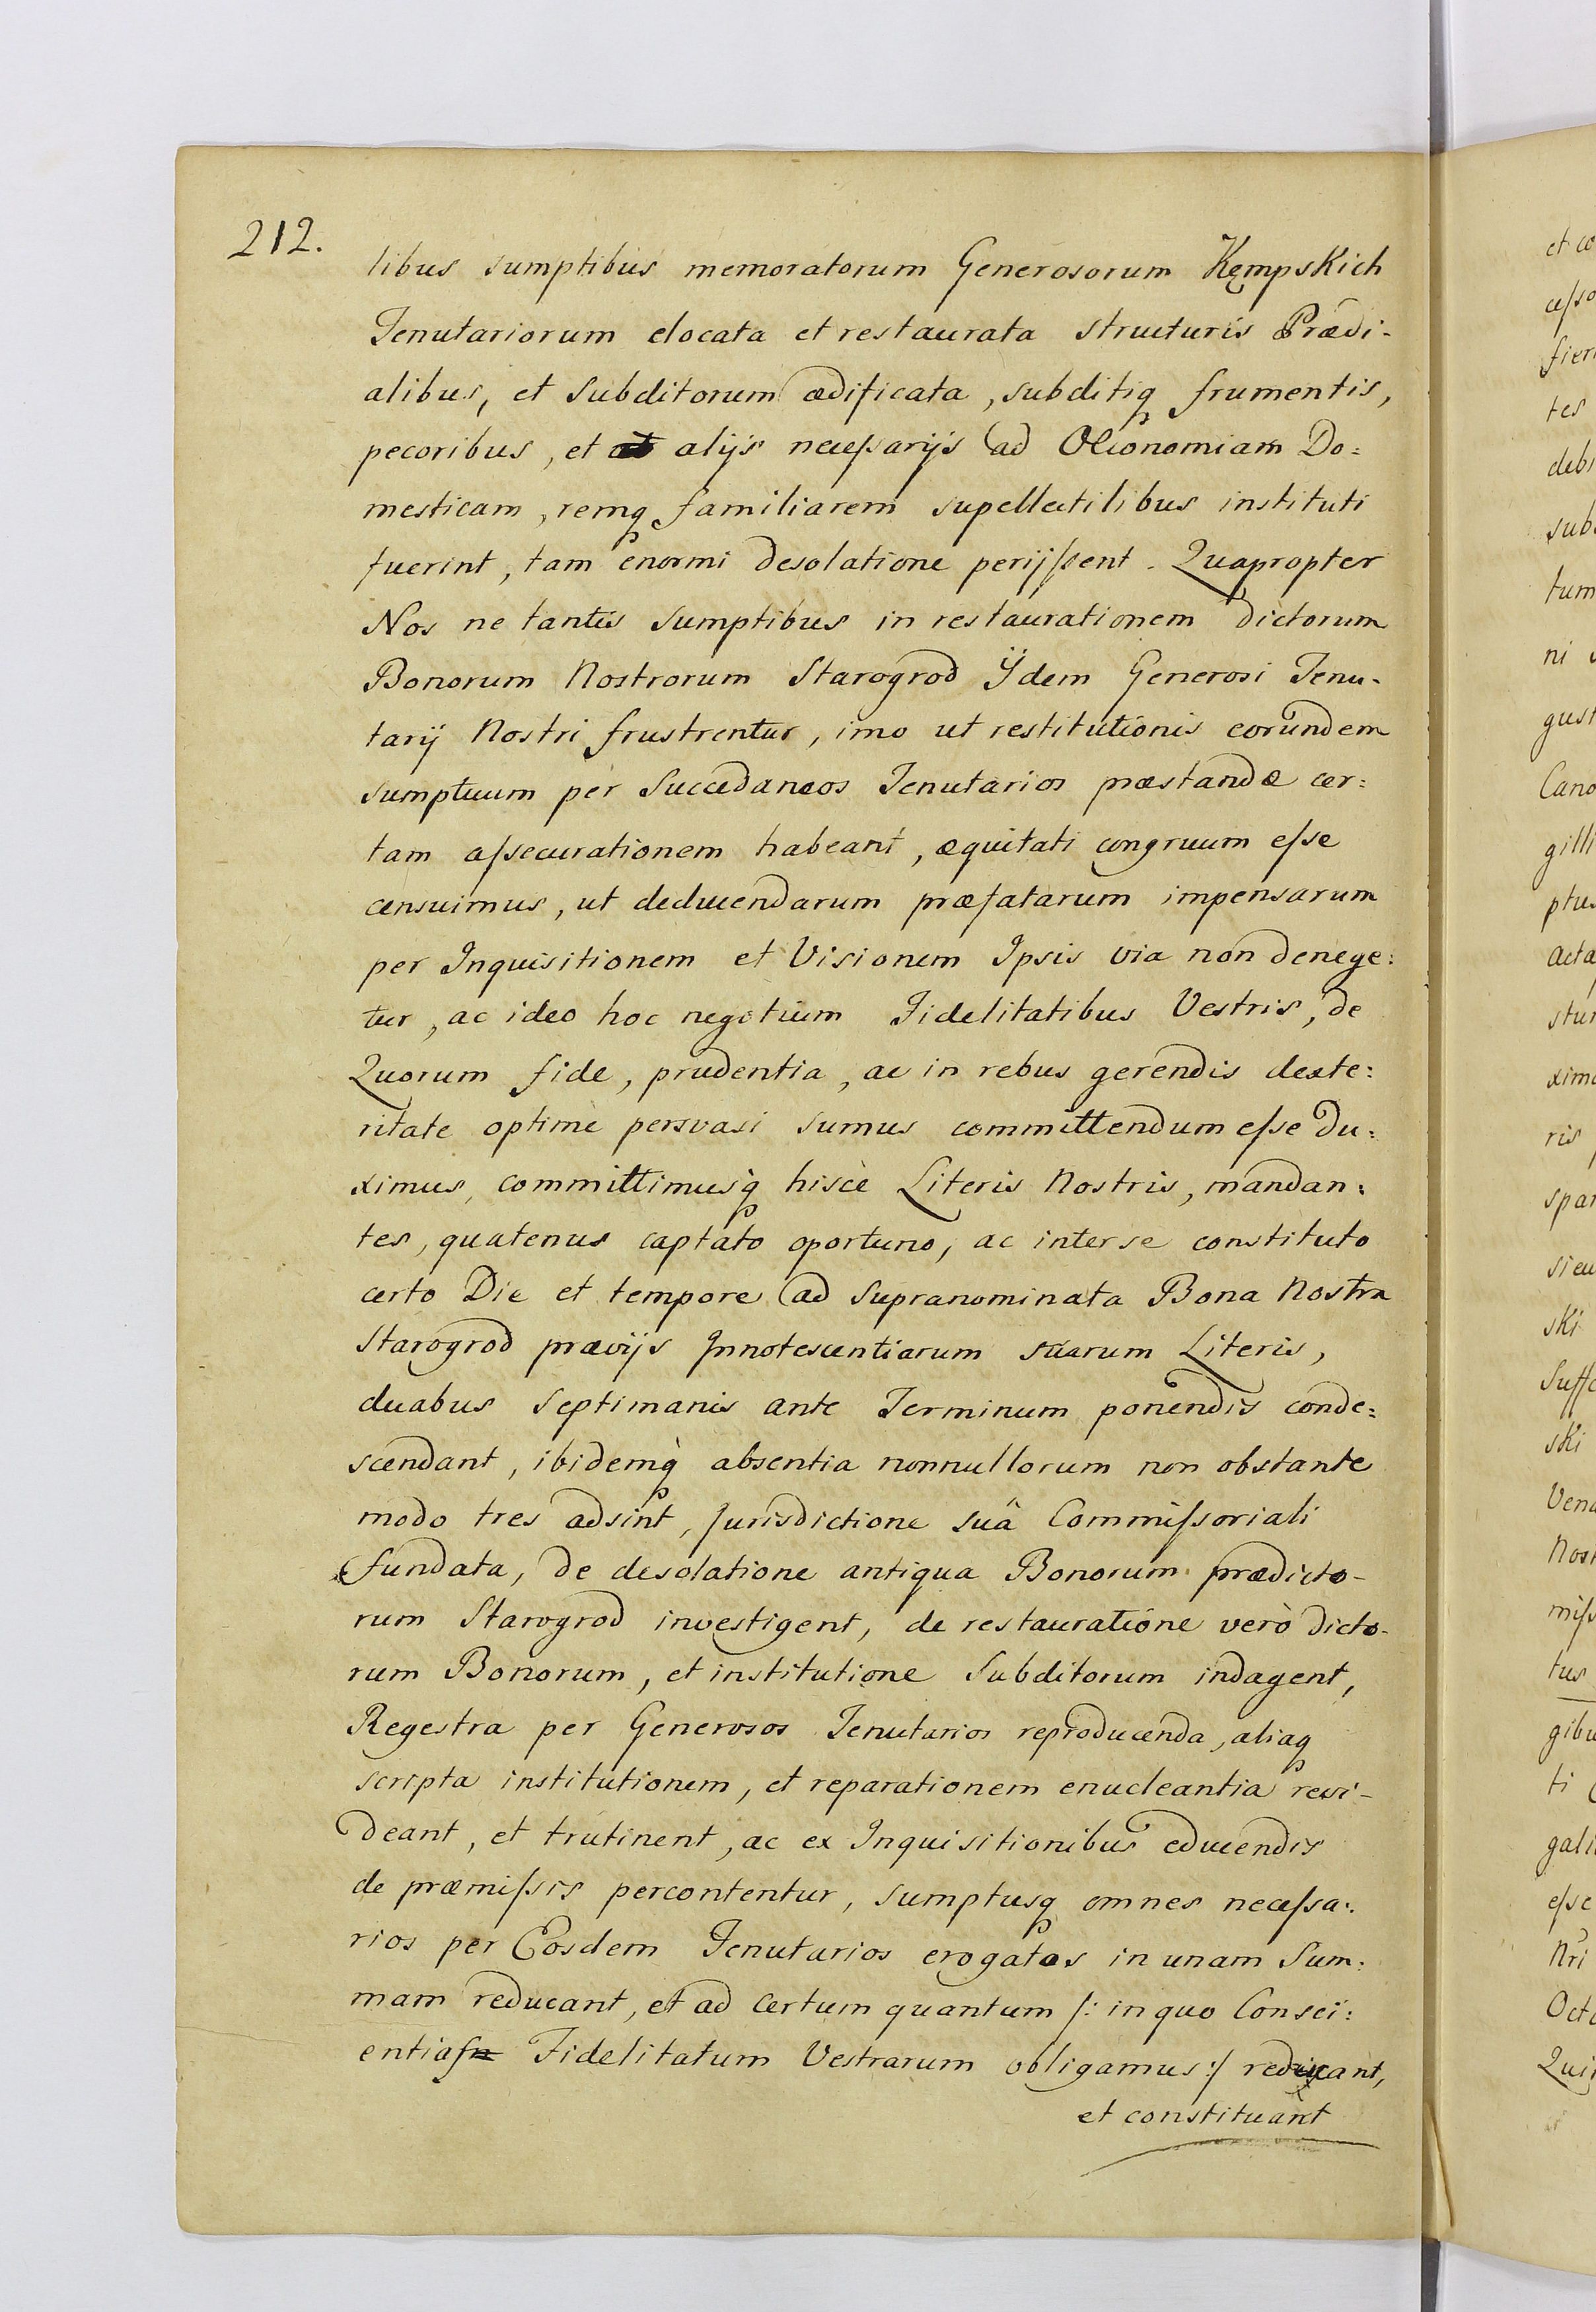 212.
libus sumptibus memoratorum Generosorum Kępskich
Tenutariorum elocata et restaurata structuris Prædi-
alibus, et Subditorum ædificata, subditiq frumentis,
pecoribus, et alijs necessarijs ad Oeconomiam Do:
mesticam, remq familiarem supellectilibus instituti
fuerint, tam enormi desolatione perijssent. Quapropter
Nos ne tantis sumptibus in restaurationem dictorum
Bonorum Nostrorum Starogrod Ÿdem Generosi Tenu-
tarij Nostri frustrentur, imo ut restitutionis eorundem
sumptuum per Succedaneos Tenutarios præstandæ cer:
tam assecurationem habeant, æquitati congruum esse
censuimus, ut deducendarum præfatarum impensarum
per Inquisitionem et Visionem Ipsis via non denege:
tur, ac ideo hoc negotium Fidelitatibus Vestris, de
Quorum fide, prudentia, ac in rebus gerendis dexte:
ritate optimè persvasi sumus committendum esse du:
ximus, committimusq hisce Literis Nostris, mandan:
tes, quatenus captato oportuno, ac inter se constituto
certo Die et tempore ad supranominata Bona Nostra
Starogrod prævijs Innotescentiarum suarum Literis,
duabus Septimanis ante Terminum ponendis conde:
scendant, ibidemq absentia nonnullorum non obstante
modo tres adsint, Jurisdictione suâ Commissoriali
fundata, de desolatione antiqua Bonorum prædicto-
rum Starogrod investigent, de restauratione verò dicto-
rum Bonorum, et institutione Subditorum indagent,
Regestra per Generosos Tenutarios reproducenda, aliaq
scripta institutionem, et reparationem enucleantia revi-
deant, et trutinent, ac ex Inquisitionibus educendis
de præmissis percontentur, sumptusq omnes necessa:
rios per Eosdem Tenutarios erogatos in unam Sum:
mam reducant, et ad certum quantum /: in quo Consci:
entias Fidelitatum Vestrarum obligamus :/ reducant,
et constituant